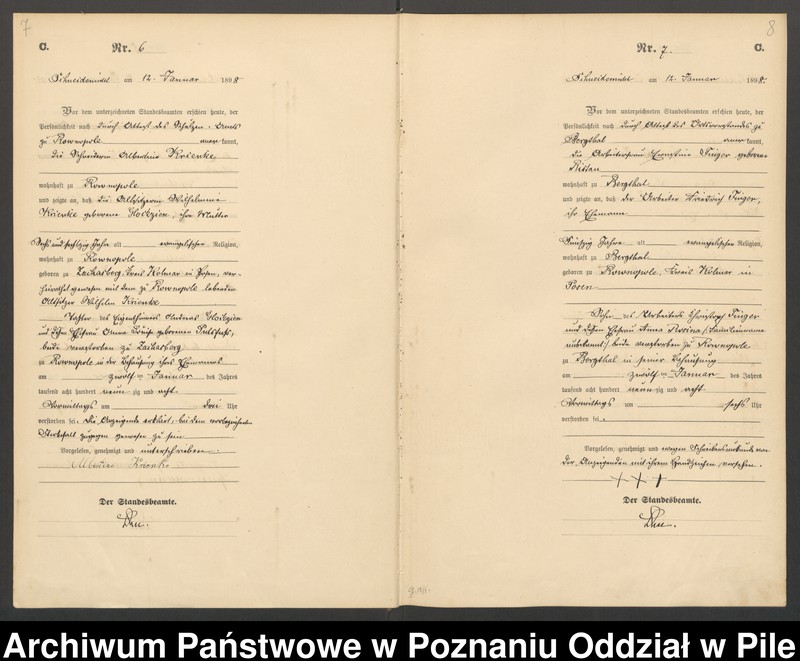 7
C.
Nr. 6
Schneidemühl am 12. Januar 1898.
Vor dem unterzeichneten Standesbeamten erschien heute, der
Persönlichkeit nach durch Attest des Schulzen-Amts
zu Rownopole anerkannt,
die Schneiderin Albertine Krienke
wohnhaft zu Rownopole
und zeigte an, daß die Altsitzerin Wilhelmine
Krienke geborene, ihre Mutter
Sechs und sechszig Jahre alt evangelischer Religion,
wohnhaft zu Rownopole
geboren zu Zacharsberg, Kreis Kolmar in Posen, ver-
heirathet gewesen mit dem zu Rownopole lebenden
Altsitzer Wilhelm Krienke
Tochter des Eigenthümers
und dessen Ehefrau Anna geborenen
beide verstorben zu Zacharsberg
zu Rownopole in der Behausung ihres Ehemannes
am zwölften Januar des Jahres
tausend acht hundert neunzig und acht
Vormittags um drei Uhr
verstorben sei. Die Anzeigende erklärt, bei dem vorbezeichneten
Sterbefall zugegen gewesen zu sein
Vorgelesen, genehmigt und unterschrieben.
Albertine Krienke
Der Standesbeamte.
8
Nr. 7.
C.
Schneidemühl am 12. Januar 1898.
Vor dem unterzeichneten Standesbeamten erschien heute, der
Persönlichkeit nach durch Attest des Ortsvorstandes zu
Bergthal anerkannt,
die Arbeiterfrau Ernestine geborene
wohnhaft zu Bergthal
und zeigte an, daß der Arbeiter Friedrich
ihr Ehemann
Fünfzig Jahre alt evangelischer Religion,
wohnhaft zu Bergthal
geboren zu Rownopole, Kreis Kolmar in
Posen
Sohn des Arbeiters Christoph
und dessen Ehefrau Anna Rosina
unbekannt) beide verstorben zu Rownopole
zu Bergthal in seiner Behausung
am zwölften Januar des Jahres
tausend acht hundert neunzig und acht
Vormittags um sechs Uhr
verstorben sei.
Vorgelesen, genehmigt und wegen Schreibensunkunde von
der Anzeigenden mit ihrem Handzeichen versehen.
+++
Der Standesbeamte.
Archiwum Państwowe w Poznaniu Oddział w Pile